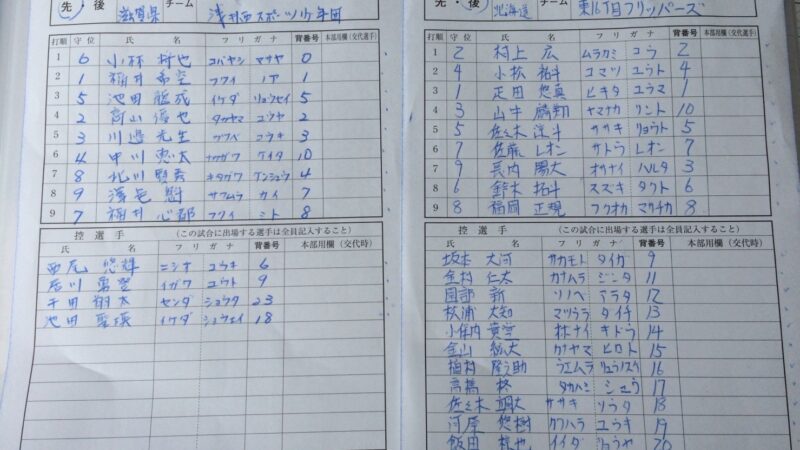 先・後 滋賀県 チーム 浅井西スポーツ少年団
打順 守位 氏名 フリガナ 背番号 本部用欄(交代選手)
1 6 小林 コバヤシ マサヤ 0
2 1 福井 希空 フクイ ノア 1
3 5 池田 龍成 イケダ リュウセイ 5
4 2 高山 優也 タカヤマ ユウヤ 2
5 3 川邉 光生 コウキ 3
6 4 中川 恵太 ナカガワ ケイタ 10
7 8 北川 賢秀 キタガワ ケンシュウ 4
8 9 澤邑 魁 サワムラ カイ 7
9 7 福井 心都 フクイ ミト 8
控選手 (この試合に出場する選手は全員記入すること)
氏名 フリガナ 背番号 本部用欄(交代時)
西尾 悠輝 ニシオ ユウキ 6
イガワ ユウト 9
千田 翔太 センダ ショウタ 23
池田 聖瑛 イケダ ショウエイ 18
先・後 北海道 チーム 東16丁目フリッパーズ
打順 守位 氏名 フリガナ 背番号 本部用欄(交代選手)
1 2 村上 広 ムラカミ コウ 2
2 4 小松 祐斗 コマツ ユウト 4
3 1 疋田 悠真 ヒキタ ユウマ 1
4 3 山中 麟翔 ヤマナカ リント 10
5 5 佐々木 涼斗 ササキ リョウト 5
6 7 佐藤 レオン サトウ レオン 7
7 9 長内 陽大 オサナイ ハルタ 3
8 6 鈴木 拓斗 スズキ タクト 6
9 8 福岡 正規 フクオカ マサチカ 8
控選手 (この試合に出場する選手は全員記入すること)
氏名 フリガナ 背番号 本部用欄(交代時)
坂本 大河 サカモト タイガ 9
金村 仁太 カナムラ ジンタ 11
園部 新 ソノベ アラタ 12
松浦 大知 マツウラ タイチ 13
小保内 貴空 キドウ 14
金山 紘大 カナヤマ ヒロト 15
植村 隆之助 ウエムラ リュウノスケ 16
高橋 柊 タカハシ シュウ 17
佐々木 颯大 ササキ ソウタ 18
河原 悠樹 カワハラ ユウキ 19
飯田 イイダ ショウヤ 20